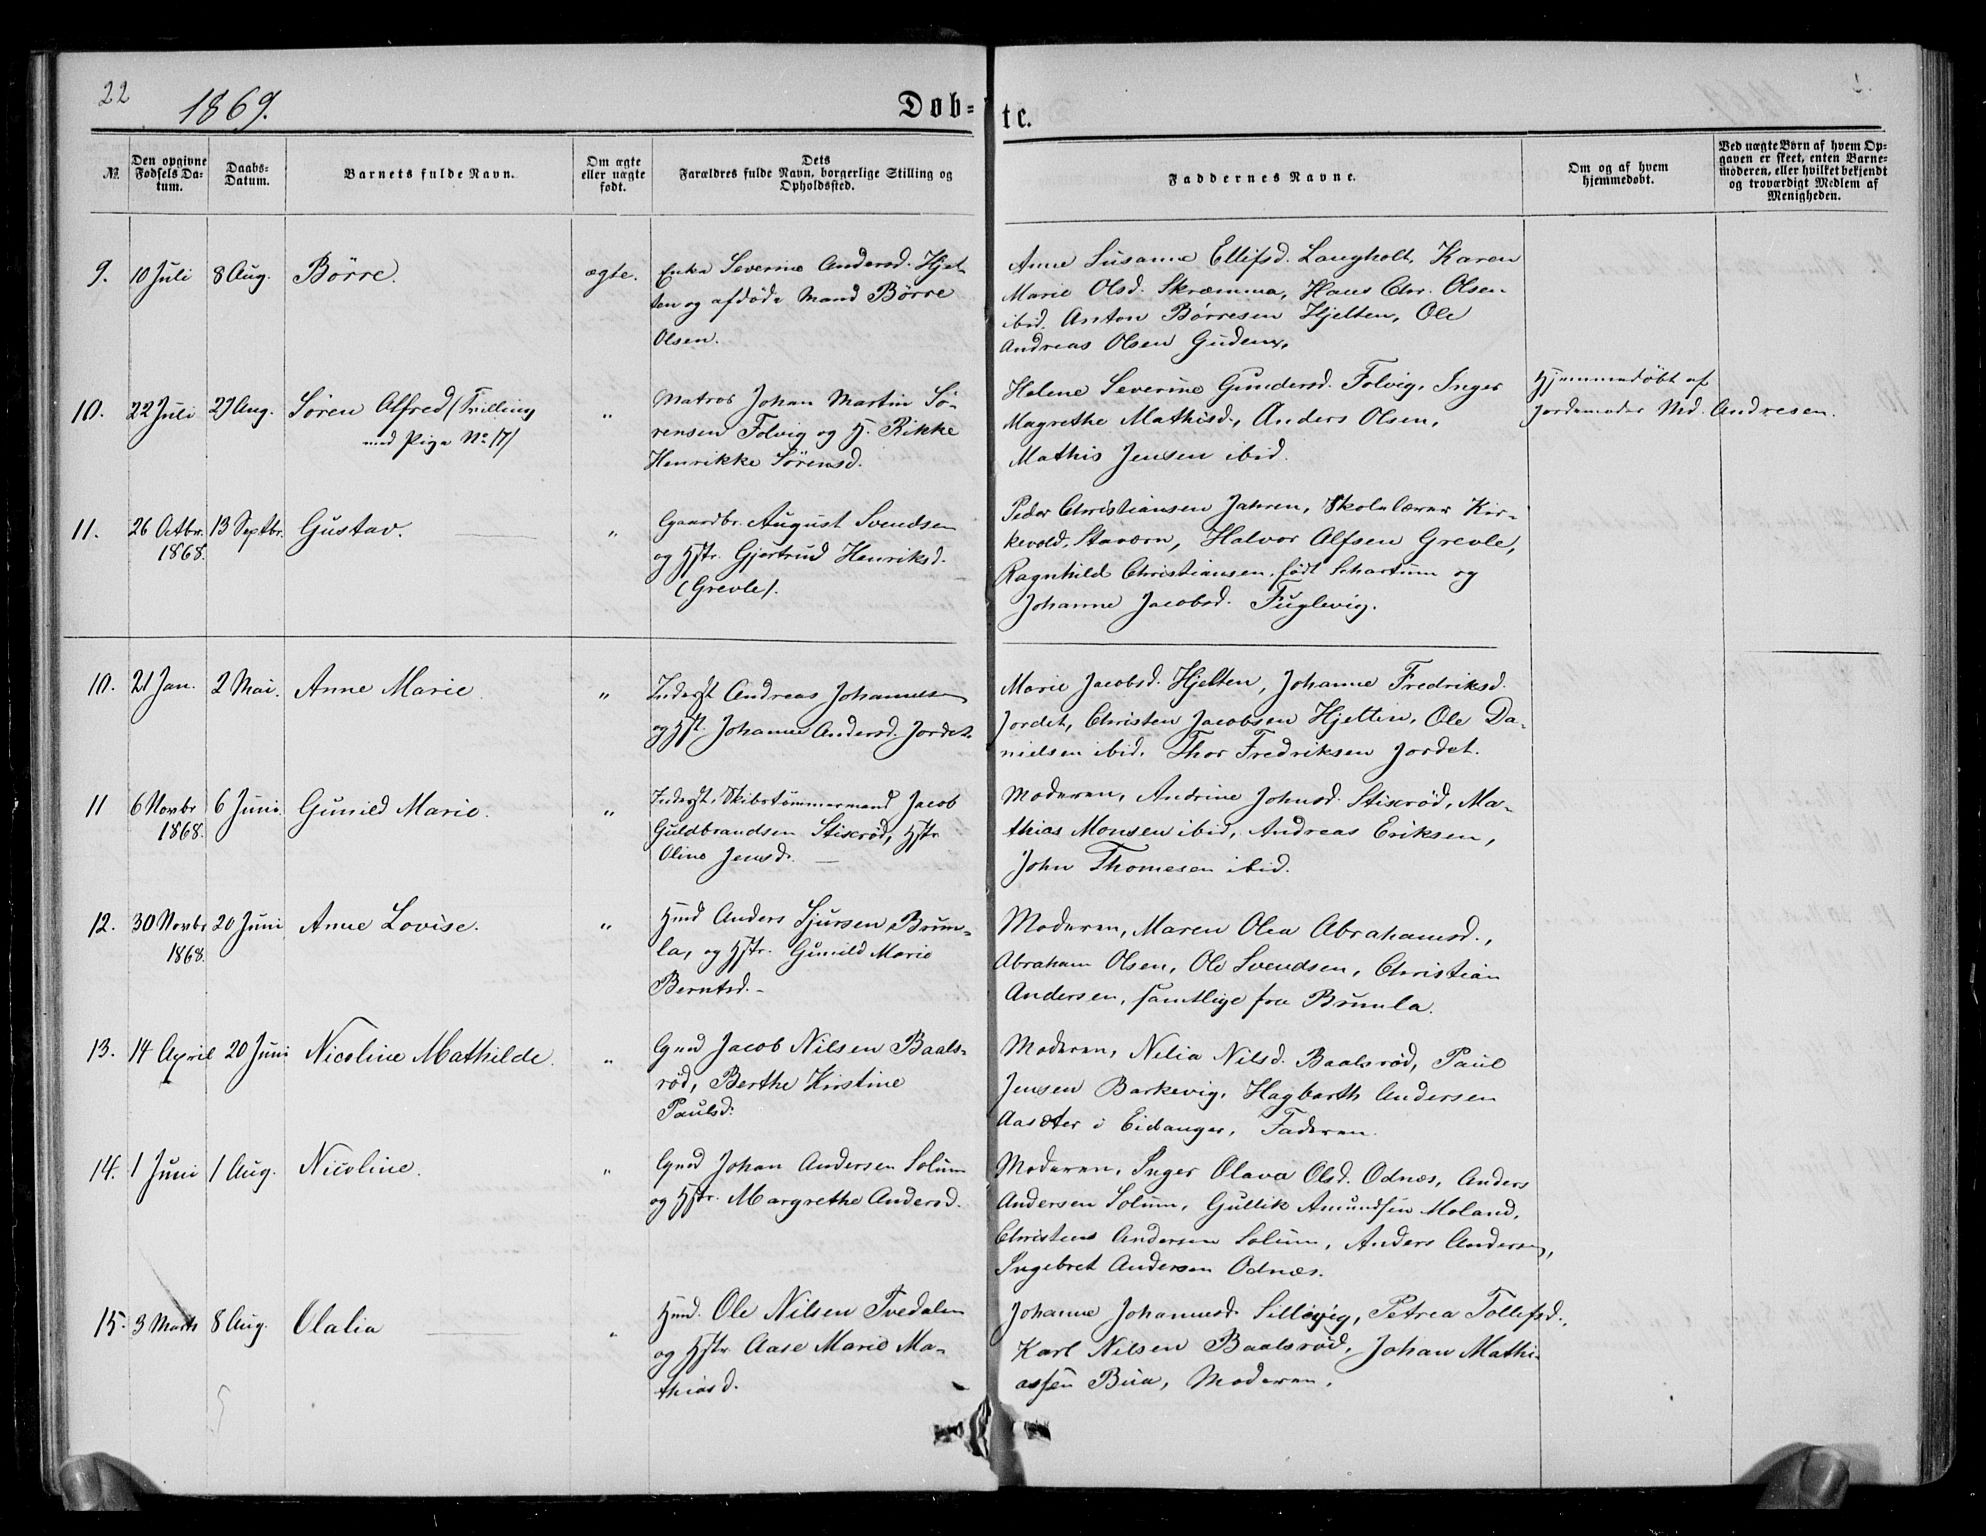 22
1869.
Døb-
te.
№
Den opgivne Fødsels Da-tum.
Daabs-Datum.
Barnets fulde Navn.
Om ægte eller uægte født.
Dets Forældres fulde Navn, borgerlige Stilling og Opholdssted.
Faddernes Navne.
Om og af hvem hjemmedøbt.
Ved uægte Børn af hvem Op-gaven er skeet, enten Barne-moderen, eller hvilket bekjendt og troværdigt Medlem af Menigheden.
9. 10 Juli 8 Aug. Børre. ægte.
Enke Severine Andersd. Hjel-
ten og afdøde Mand Børre
Olsen.
Anne Susanne Ellefsd. Langholt, Karen
Marie Olsd. Skræmma, Hans Chr. Olsen
ibid. Anton Børresen Hjelten, Ole
Andreas Olsen Guden,
10. 22 Juli 29 Aug. Søren Alfred (Tvilling "
med Pige No. 17)
Matros Johan Martin Sø-
rensen Folvig og H. Rikke
Henrikke Sørensd.
Helene Severine Gundersd. Folvig, Inger
Magrethe Mathisd., Anders Olsen,
Mathis Jensen ibid.
Hjemmedøbt af
Jordemoder Md. Andresen.
11. 26 Octbr. 13 Septbr. Gustav. "
1868.
Gaardbr. August Svendsen
og Hstr. Gjertrud Henriksd.
(Grevle).
Peder Christiansen Jahren, Skolelærer Kir-
kevold, Stavern, Halvor Alfsen Grevle,
Ragnhild Christiansen, født Schartum og
Johanne Jacobsd. Fuglevig.
10. 21 Jan. 2 Mai. Anne Marie. "
Inderst Andreas Johannesen
og Hst. Johanne Andersd. Jordet.
Marie Jacobsd. Hjelten, Johanne Fredriksd.
Jordet, Christen Jacobsen Hjelten, Ole Da-
nielsen ibid. Thor Fredriksen Jordet.
11 6 Novbr 6 Juni. Gunild Marie. "
1868.
Inderst, Skibstømmermand Jacob
Guldbrandsen Stisrød, Hstr.
Oline Jensd.
Moderen, Andrine Johnsd. Stisrød, Ma-
thias Monsen ibid, Andreas Eriksen,
John Thomesen ibid.
12. 30 Novbr 20 Juni Anne Lovise. "
1868.
Hmd Anders Sjursen Brun-
la, og Hstr. Gunild Marie
Berntsd.
Moderen, Maren Olea Abrahamsd.,
Abraham Olsen, Ole Svendsen, Christian
Andersen, samtlige fra Brunla.
13. 14 April 20 Juni Nicoline Mathilde. "
Gmd Jacob Nilsen Baals-
rød, Berthe Kirstine
Paulsd.
Moderen, Nilia Nilsd. Baalsrød, Paul
Jensen Barkevig, Hagbarth Andersen
Aasæter i Eidanger, Faderen.
14. 1 Juni 1 Aug. Nicoline. "
Gmd Johan Andersen Solum
og Hstr. Margrethe Andersd.
Moderen, Inger Olava Olsd. Odnæs, Anders
Andersen Solum, Gullik Amundsen Moland,
Christens Andersen Solum, Anders Andersen,
Ingebret Andersen Odnæs.
15. 3 Marts 8 Aug. Olalia "
Hmd. Ole Nilsen Tvedalen
og Hstr. Aase Marie Ma-
thiasd.
Johanne Johannesd. Sillevig, Petrea Tollefsd.,
Karl Nilsen Baalsrød, Johan Mathi-
assen Bua, Moderen.